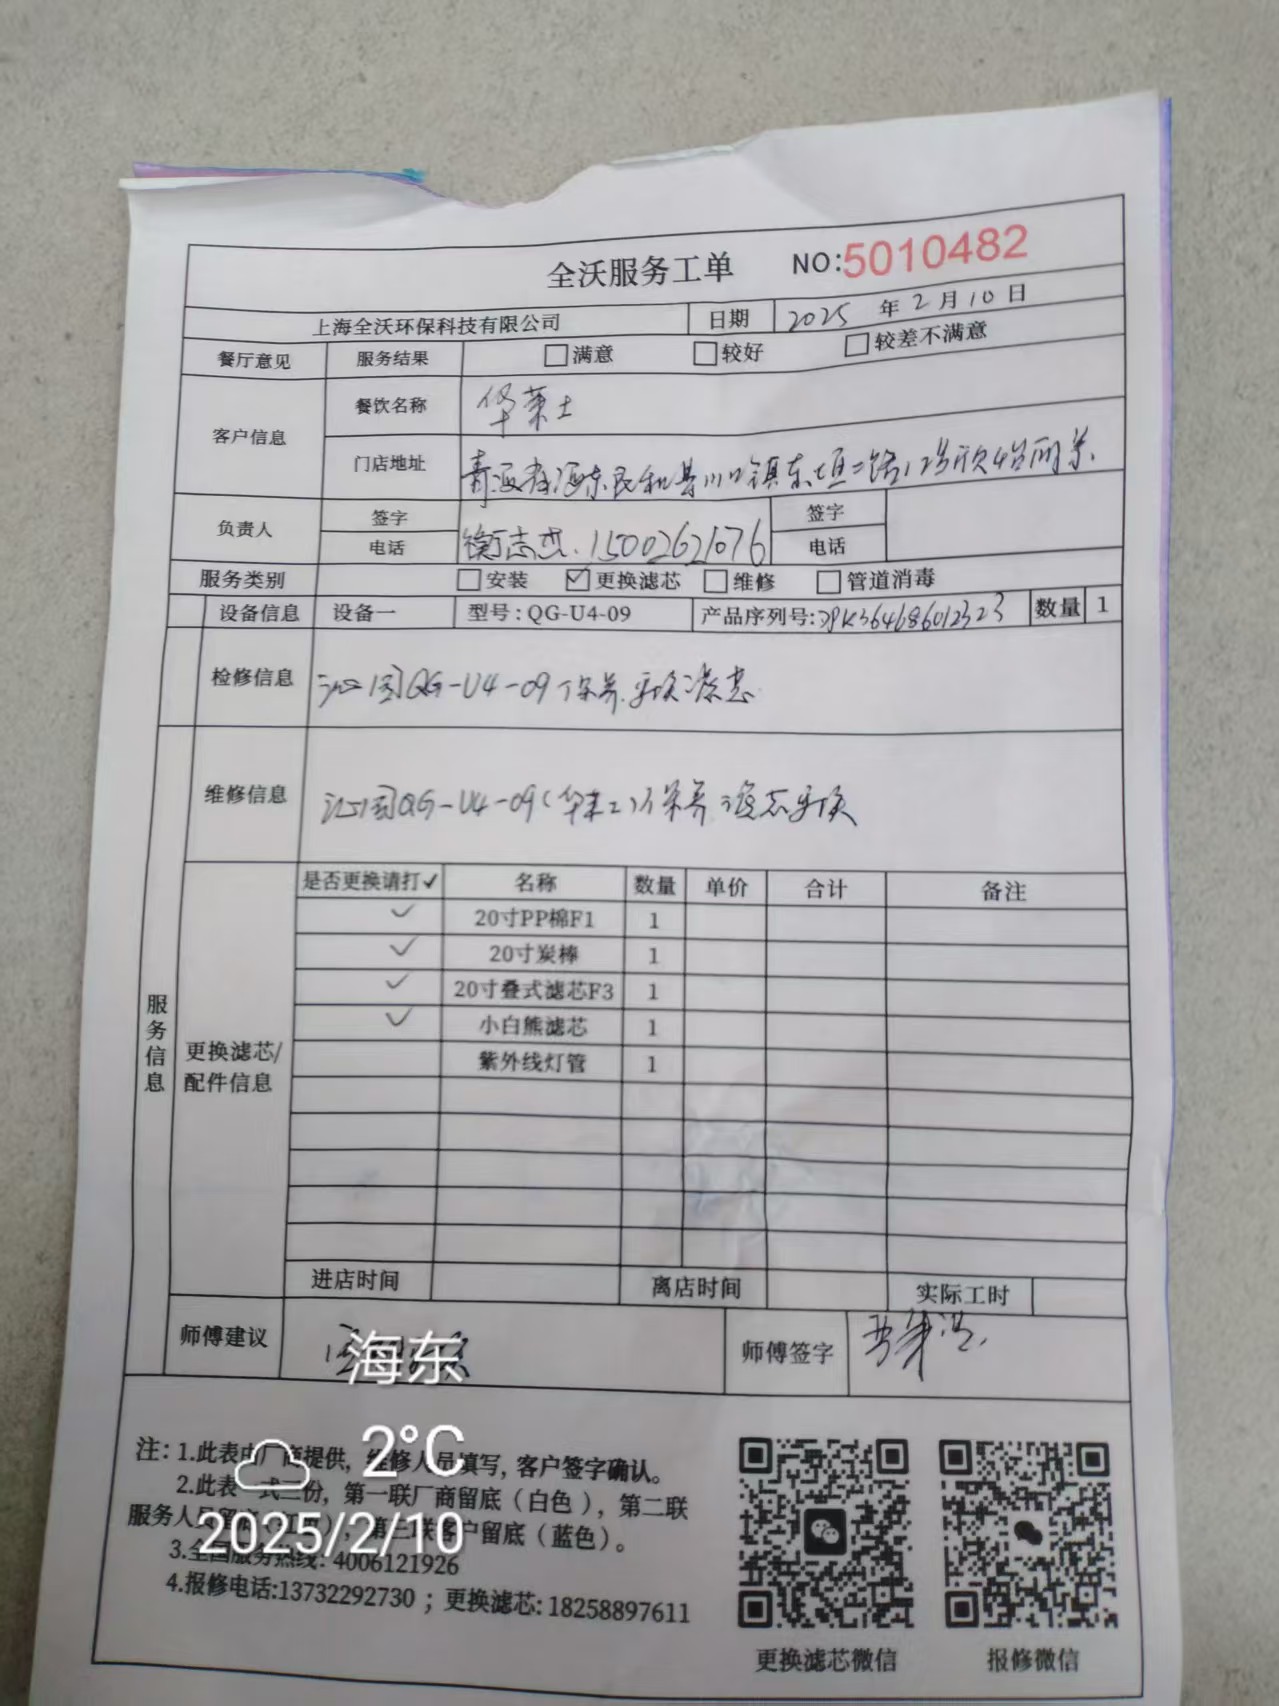 全沃服务工单 NO:5010482
上海全沃环保科技有限公司 日期 2025 年 2 月 10 日
餐厅意见 服务结果 满意 较好 较差不满意
客户信息 餐饮名称 华莱士
门店地址 青海省海东民和县川口镇东垣二路
负责人 签字 签字
电话 15002621076 电话
服务类别 安装 ✓更换滤芯 维修 管道消毒
设备信息 设备一 型号:QG-U4-09 产品序列号: 数量 1
检修信息 沁园QG-U4-09保养.更换滤芯
维修信息 沁园QG-U4-09(华莱士)保养.滤芯更换
服务信息
更换滤芯/
配件信息
是否更换请打✓ 名称 数量 单价 合计 备注
✓ 20寸PP棉F1 1
✓ 20寸炭棒 1
✓ 20寸叠式滤芯F3 1
✓ 小白熊滤芯 1
紫外线灯管 1
进店时间 离店时间 实际工时
师傅建议 师傅签字
海东
2°C
2025/2/10
注: 1.此表由厂商提供, 维修人员填写, 客户签字确认。
2.此表一式三份, 第一联厂商留底（白色）, 第二联
服务人员留底 , 第三联客户留底（蓝色）。
3.全国服务热线: 4006121926
4.报修电话:13732292730 ; 更换滤芯: 18258897611
更换滤芯微信 报修微信